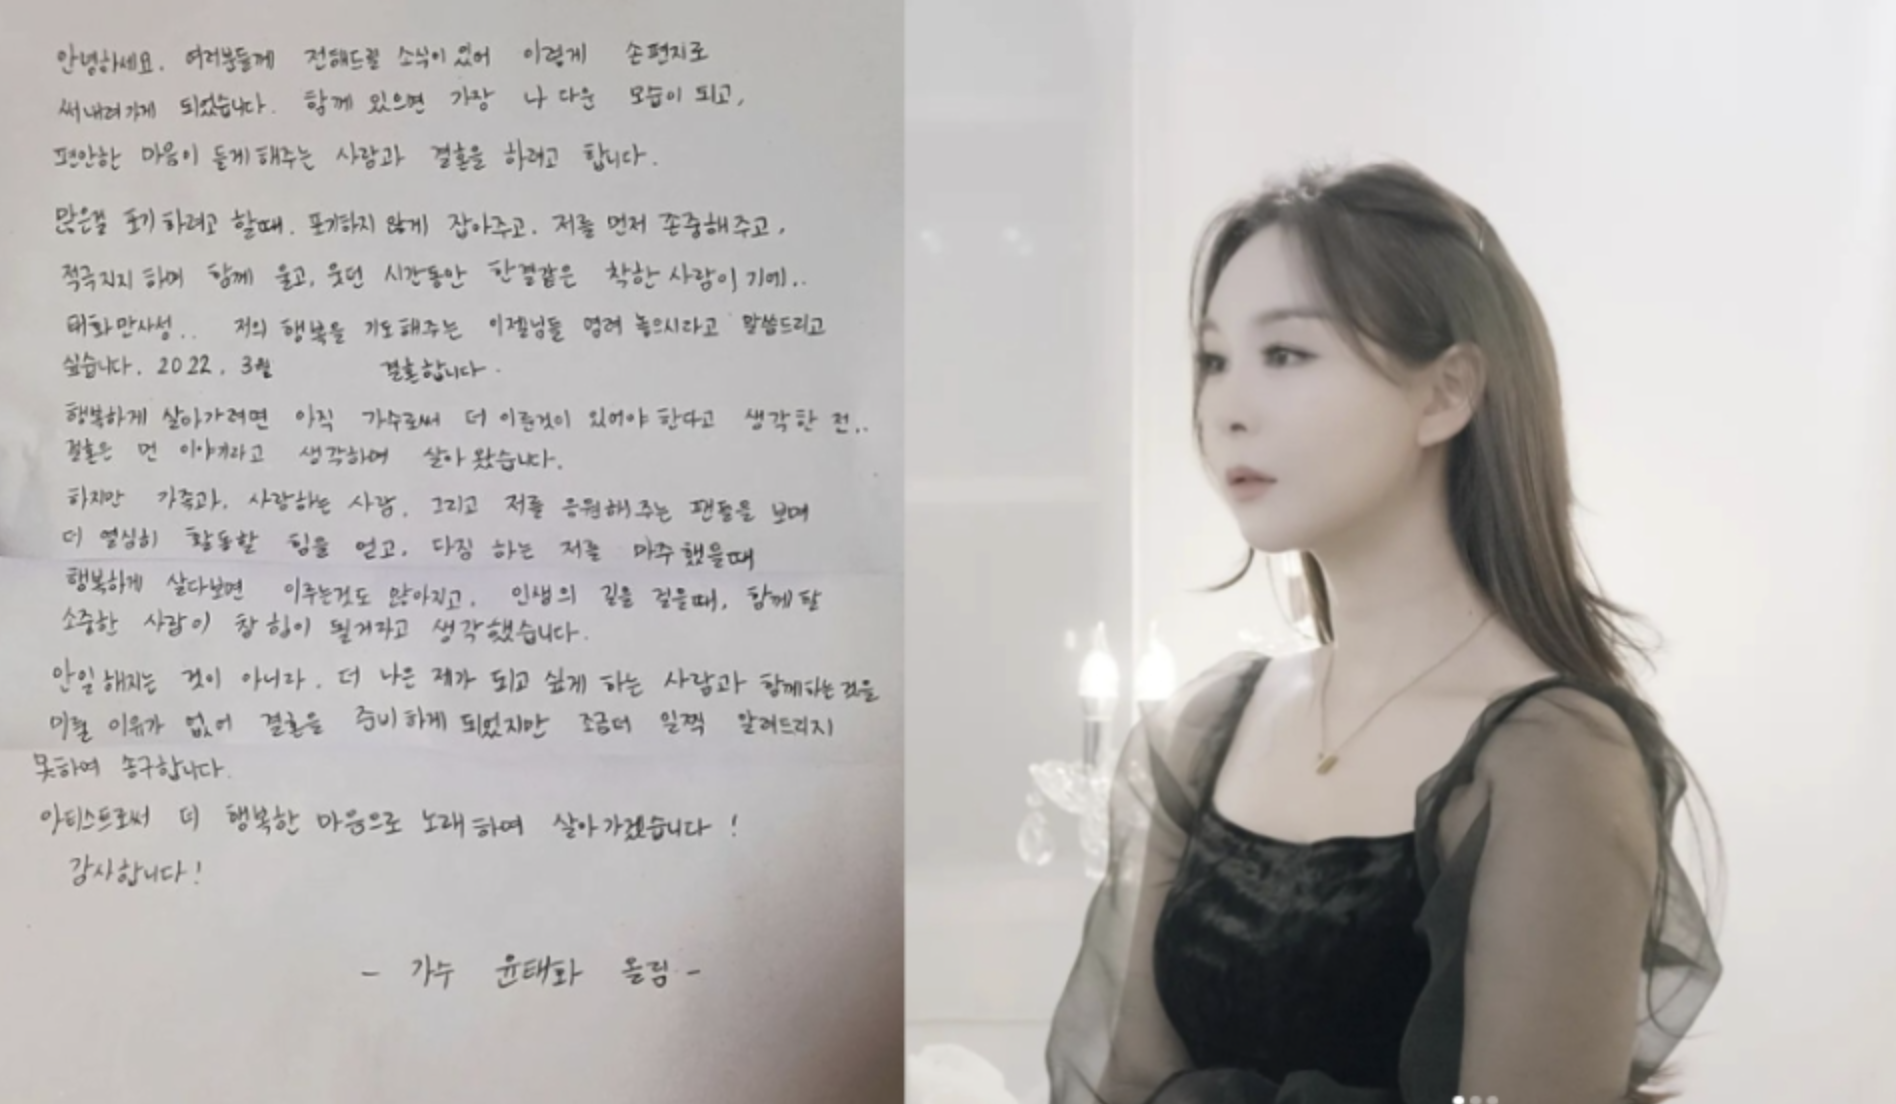 안녕하세요. 여러분들께 전해드릴 소식이 있어 이렇게 손편지로
써내려가게 되었습니다. 함께 있으면 가장 나 다운 모습이 되고,
편안한 마음이 들게 해주는 사람과 결혼을 하려고 합니다.
많은걸 포기하려고 할때. 포기하지 않게 잡아주고. 저를 먼저 존중해주고,
적극지지 하며 함께 울고, 웃던 시간동안 한결같은 착한 사람이기에..
태화만사성.. 저의 행복을 기도해주는 이젤님들 염려 놓으시라고 말씀드리고
싶습니다. 2022. 3월 결혼합니다.
행복하게 살아가려면 아직 가수로써 더 이룬것이 있어야 한다고 생각한 전..
결혼은 먼 이야기라고 생각하며 살아 왔습니다.
하지만 가족과, 사랑하는 사람, 그리고 저를 응원해 주는 팬들을 보며
더 열심히 활동할 힘을 얻고, 다짐 하는 저를 마주했을때
행복하게 살다보면 이루는것도 많아지고, 인생의 길을 걸을때, 함께 할
소중한 사람이 참 힘이 될거라고 생각했습니다.
안일해지는 것이 아니라, 더 나은 제가 되고 싶게 하는 사람과 함께하는것을
미룰 이유가 없어 결혼을 준비하게 되었지만 조금더 일찍 알려드리지
못하여 송구합니다.
아티스트로써 더 행복한 마음으로 노래하며 살아가겠습니다!
감사합니다!
- 가수 윤태화 올림 -